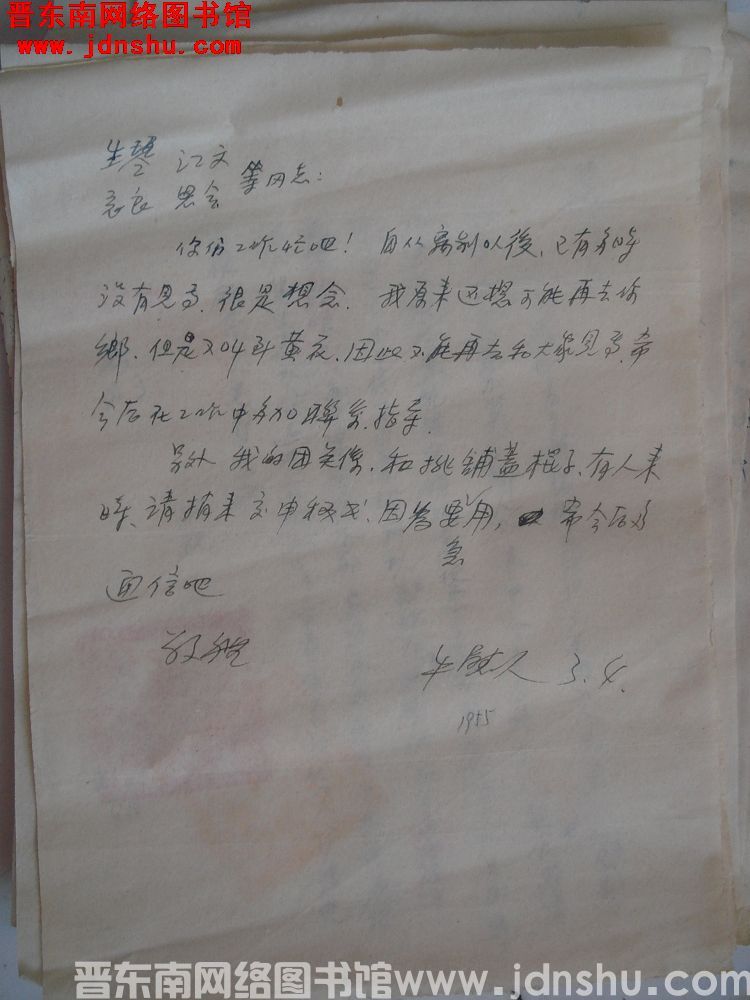 晋东南网络图书馆
www.jdnshu.com
生琴 江文
良 思会 等同志:
你们工作忙吧! 自从离别以後,已有多时
没有见面,很是想念. 我原来还想可能再去你
鄉,但是又叫到黄花,因此不能再去和大家见面,希
今后在工作中多加聯系,指导.
另外 我的团关係,和挑鋪蓋棍子,有人来
时,请捎来交申秘书,因为要用, 希今后多
急
通信吧
敬礼
牛 人 3.4.
1955
晋东南网络图书馆www.jdnshu.com